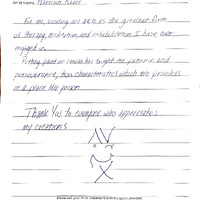 Artist Name:
For me, creating art beads is the greatest form
of therapy, meditation, and rehabilitation I have ever
engaged in.
Putting paint on canvas has taught me patience and
perseverance, two characteristics which are priceless
in a place like prison.
Thank You to everyone who appreciates
my creations